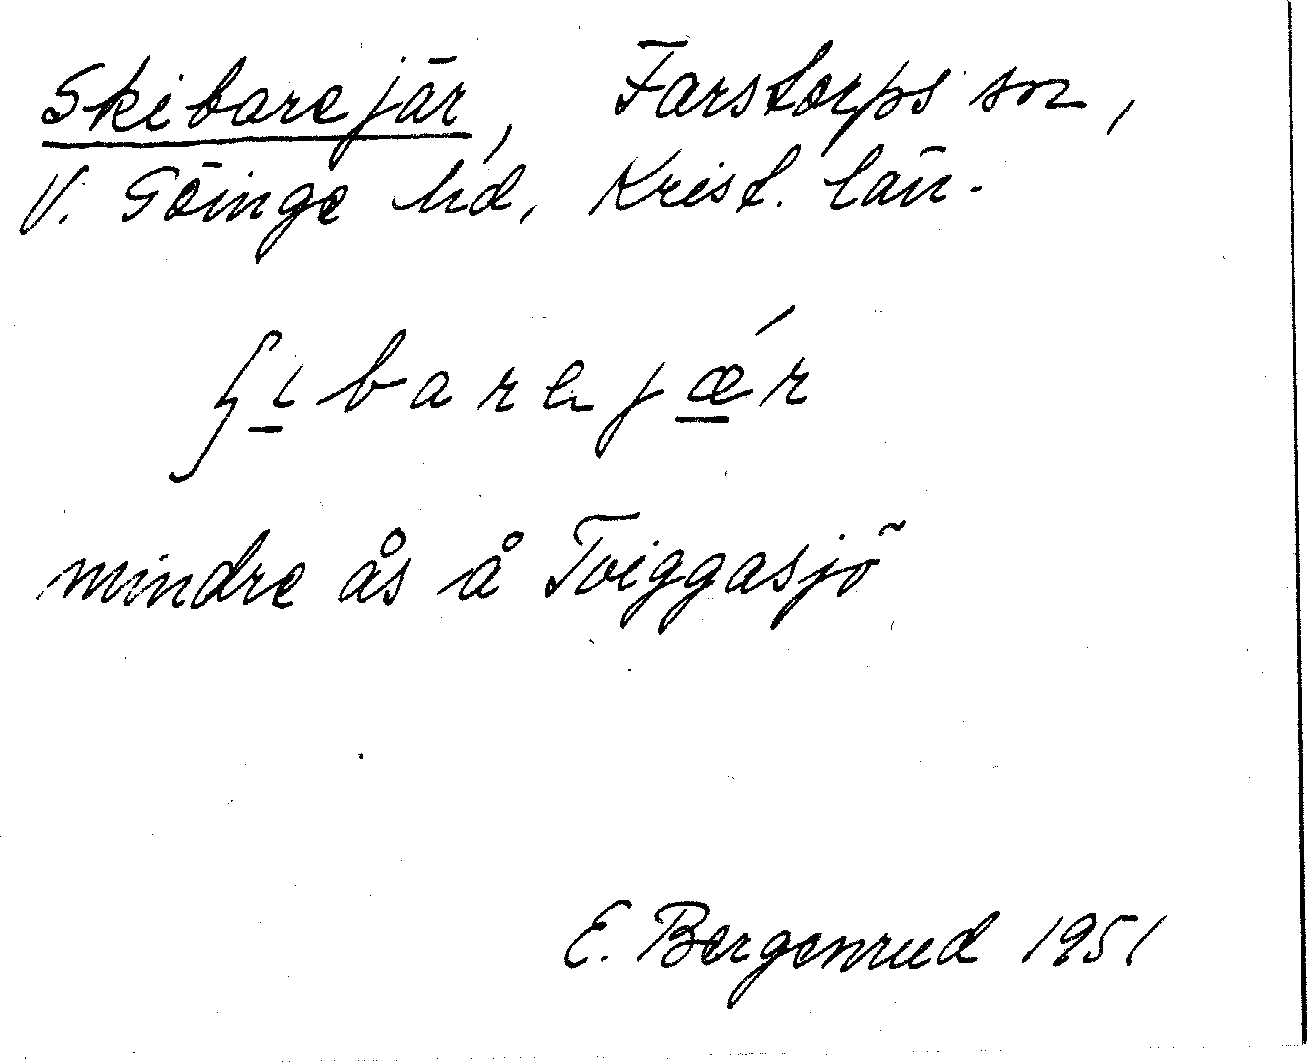 Skibarejär, Farstorps sn,
V. Göinge hd, Krist. län.
ʃi̱barejǽ̱r
mindre ås å Tviggasjö
E. Bergenrud 1951